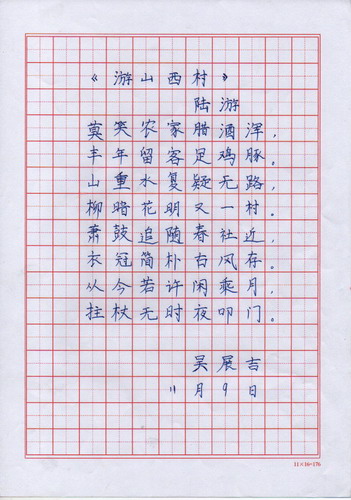 《游山西村》
陆游
莫笑农家腊酒浑，
丰年留客足鸡豚。
山重水复疑无路，
柳暗花明又一村。
萧鼓追随春社近，
衣冠简朴右风存。
从今若许闲乘月，
拄杖无时夜叩门。
吴展吉
11月9日
11×16=176